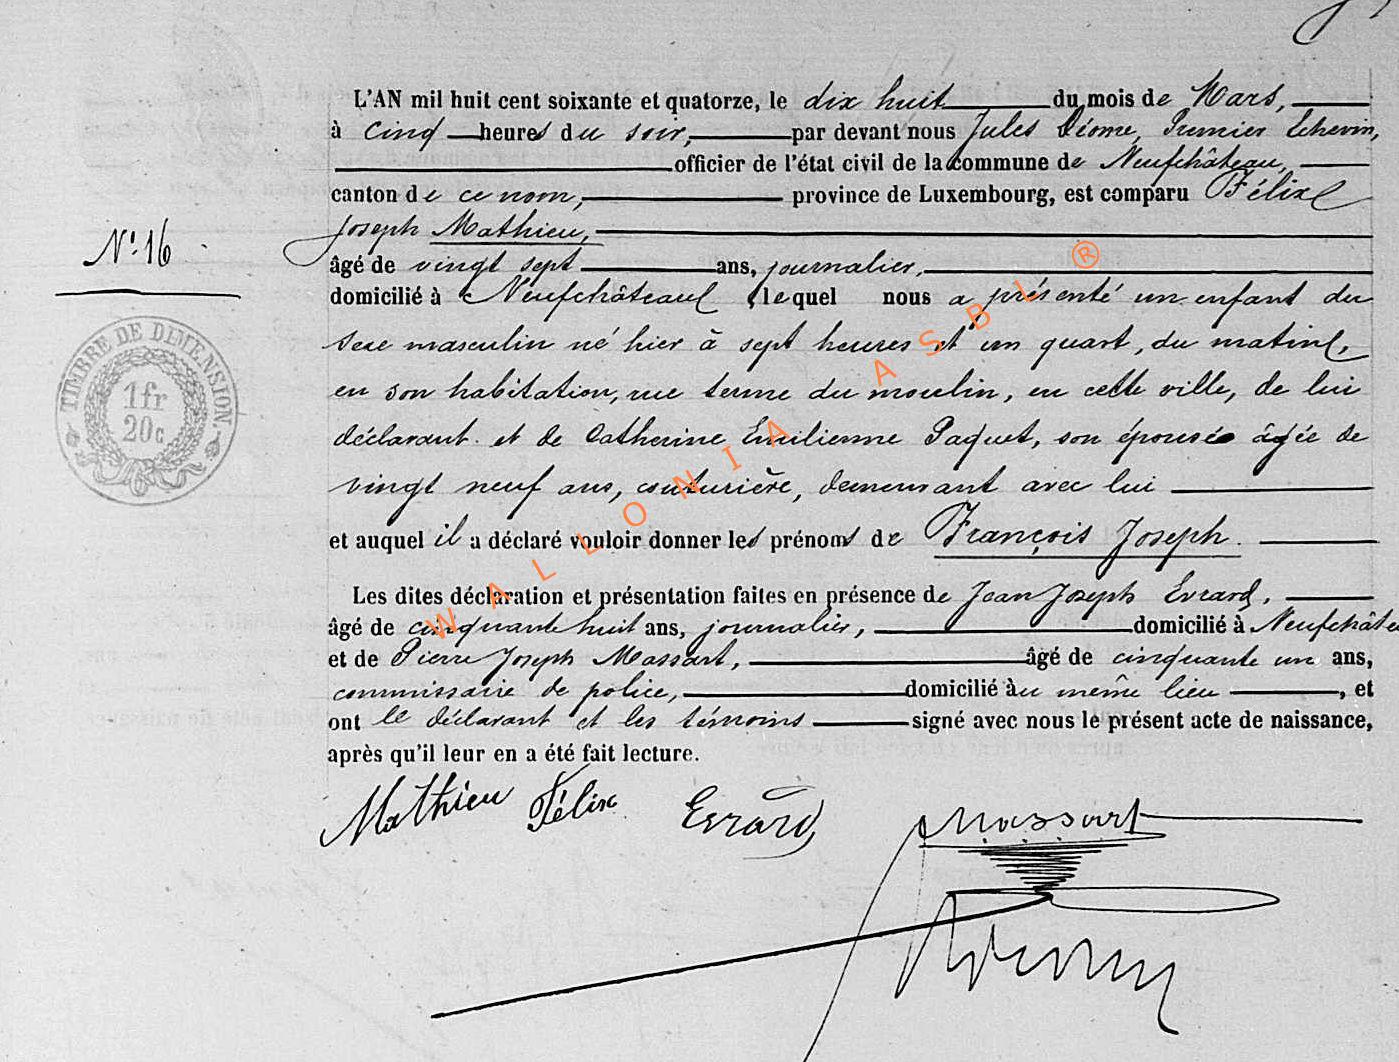 L'AN mil huit cent soixante et quatorze, le dix huit du mois de Mars,
à cinq heures du soir, par devant nous Jules Déome, Premier Echevin,
officier de l'état civil de la commune de Neufchâteau,
canton de ce nom, province de Luxembourg, est comparu Félix
Joseph Mathieu,
N° 16
âgé de vingt sept ans, journalier,
domicilié à Neufchâteau lequel nous a présenté un enfant du
sexe masculin né hier à sept heures et un quart, du matin,
en son habitation, rue terme du moulin, en cette ville, de lui
déclarant et de Catherine Emilienne Paquet, son épouse âgée de
vingt neuf ans, couturière, demeurant avec lui
et auquel il a déclaré vouloir donner les prénoms de François Joseph.
Les dites déclaration et présentation faites en présence de Jean Joseph Evrard,
âgé de cinquante huit ans, journalier, domicilié à Neufchâte
et de Pierre Joseph Massart, âgé de cinquante un ans,
commissaire de police, domicilié au même lieu, et
ont le déclarant et les témoins signé avec nous le présent acte de naissance,
après qu'il leur en a été fait lecture.
Mathieu Félix Evrard Massart
TIMBRE DE DIMENSION.
1fr
20c
WALLONIA ASBL ®